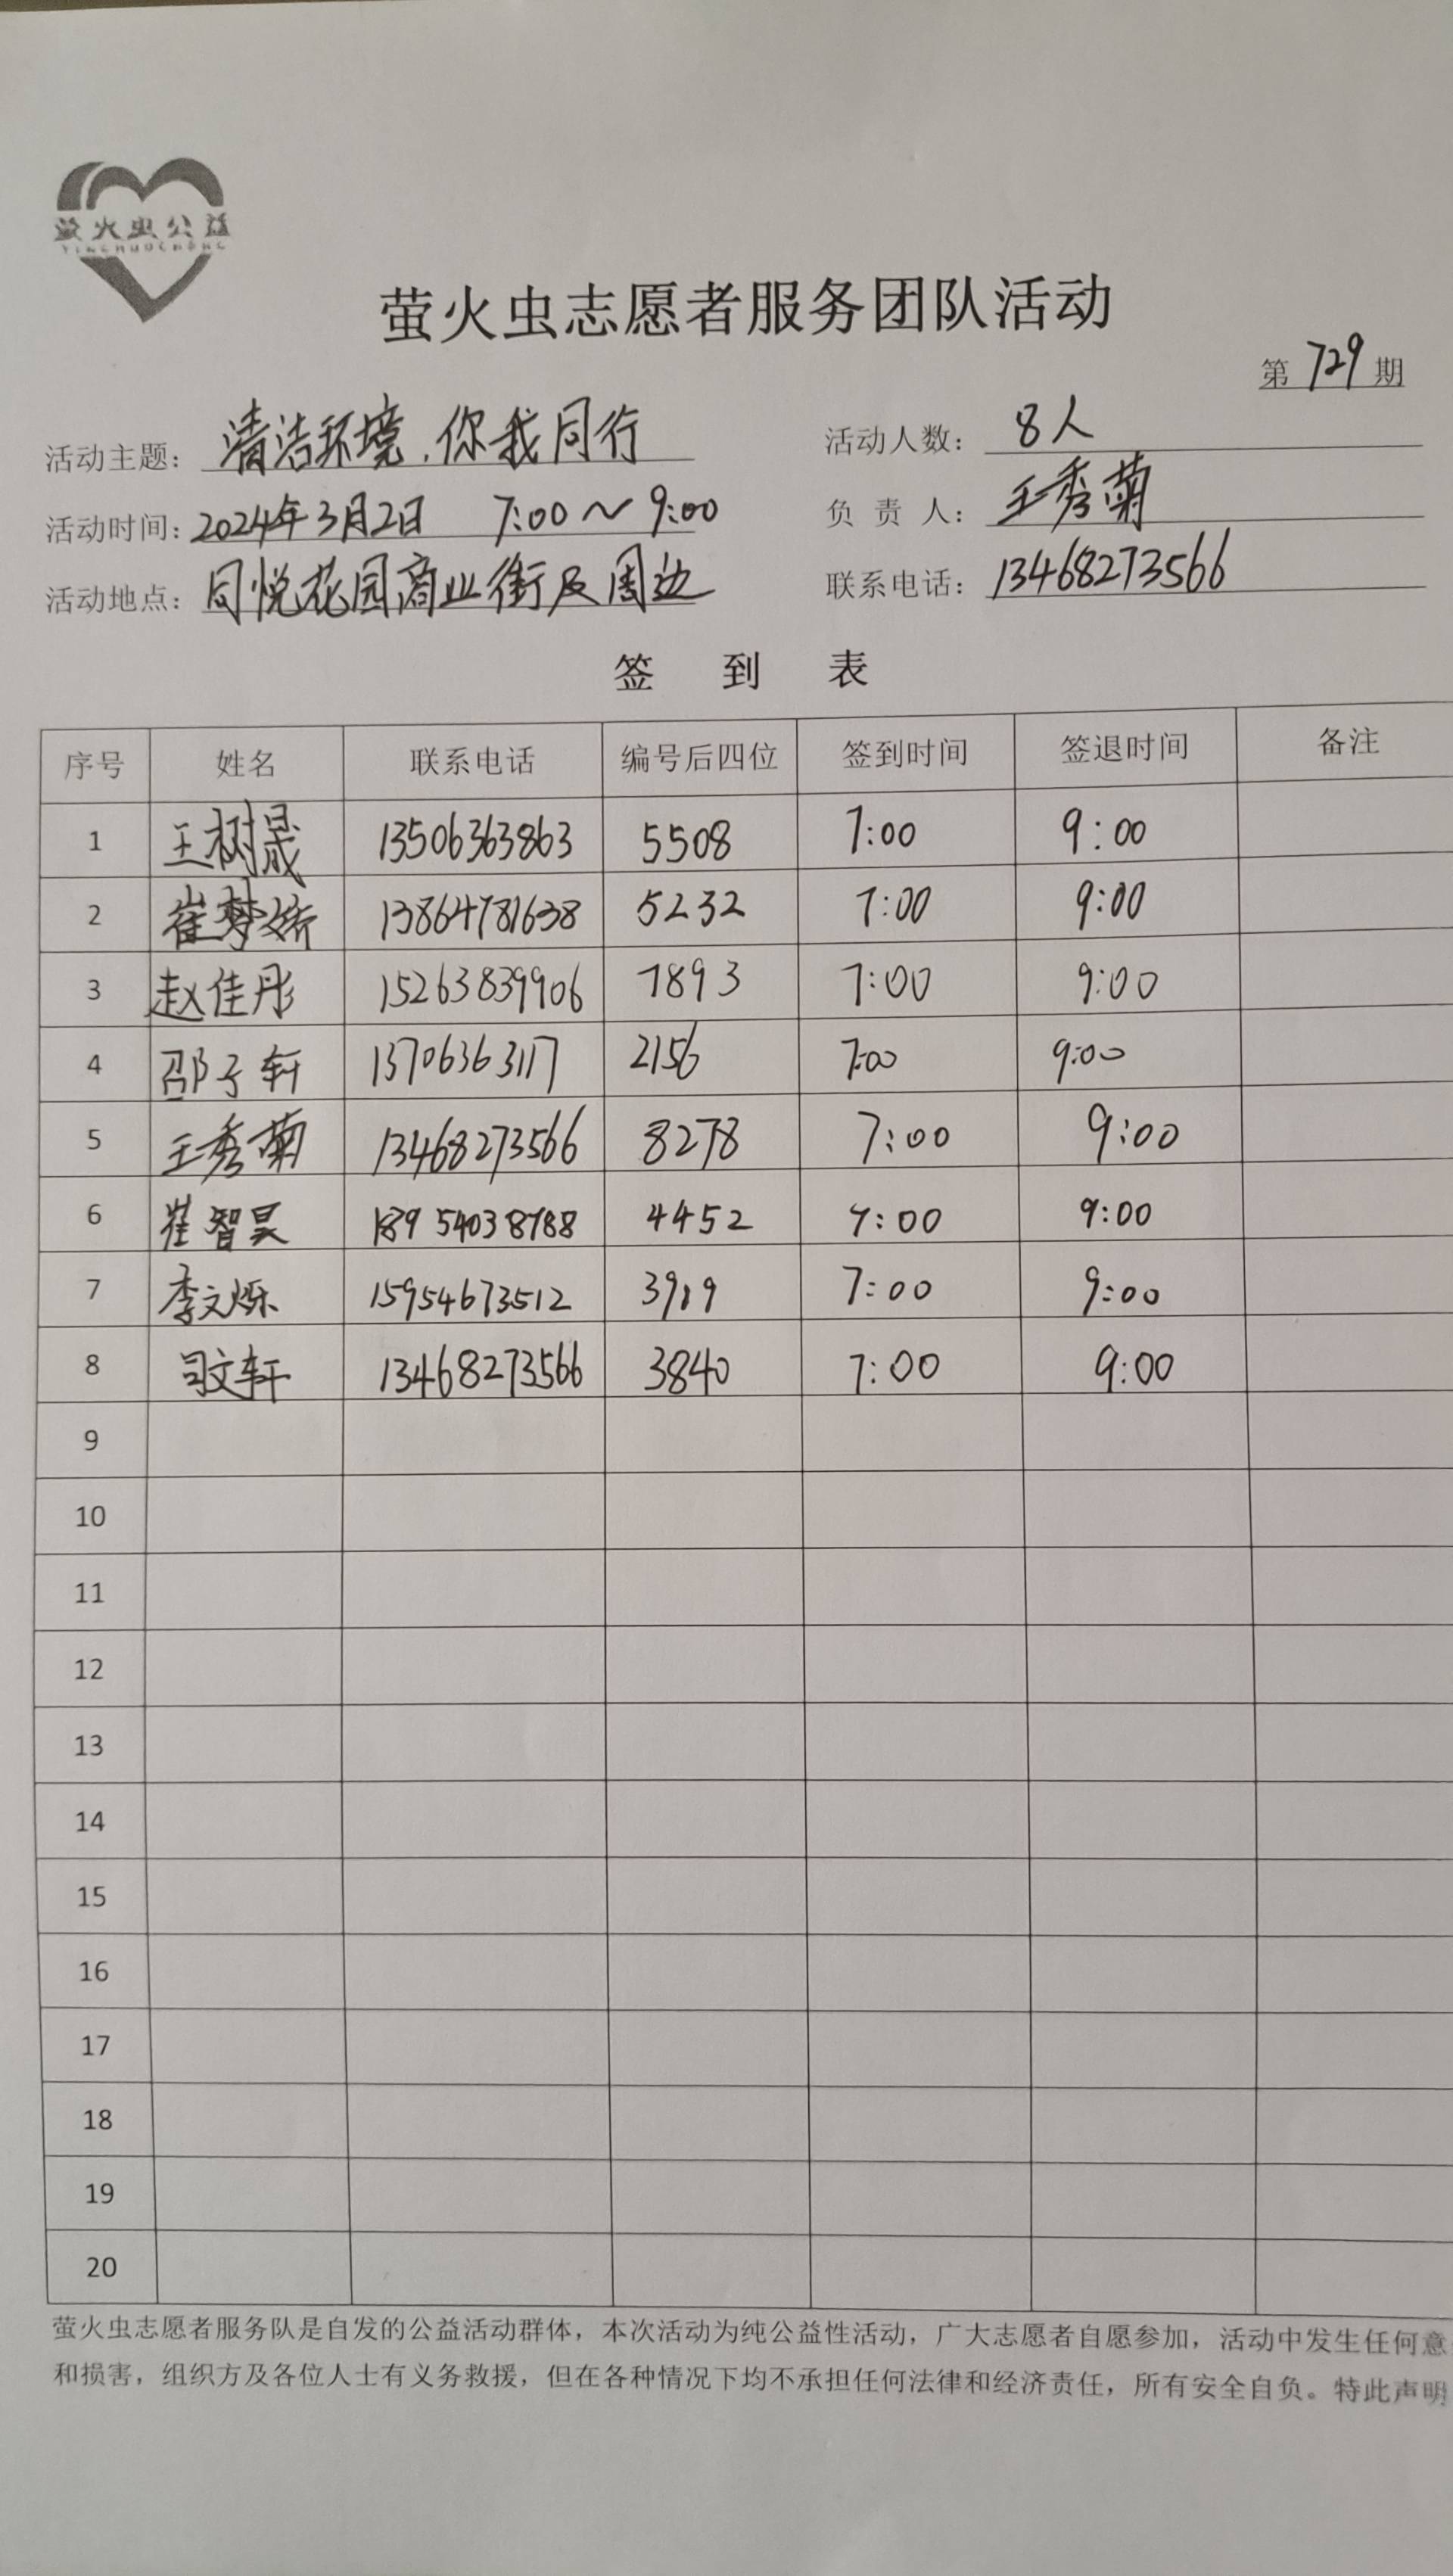 萤火虫公益
YINGHUOCHONG
萤火虫志愿者服务团队活动
第 729 期
活动主题: 清洁环境,你我同行 活动人数: 8人
活动时间: 2024年3月2日 7:00～9:00 负责人: 王秀菊
活动地点: 同悦花园商业街及周边 联系电话: 13468273566
签到表
序号 姓名 联系电话 编号后四位 签到时间 签退时间 备注
1 王树晟 13506363863 5508 7:00 9:00
2 崔梦娇 13864781638 5232 7:00 9:00
3 赵佳彤 15263839906 7893 7:00 9:00
4 邵子轩 13706363117 2156 7:00 9:00
5 王秀菊 13468273566 8278 7:00 9:00
6 崔智昊 18954038788 4452 7:00 9:00
7 李文烁 15954673512 3919 7:00 9:00
8 司文轩 13468273566 3840 7:00 9:00
9
10
11
12
13
14
15
16
17
18
19
20
萤火虫志愿者服务队是自发的公益活动群体，本次活动为纯公益性活动，广大志愿者自愿参加，活动中发生任何意
和损害，组织方及各位人士有义务救援，但在各种情况下均不承担任何法律和经济责任，所有安全自负。特此声明